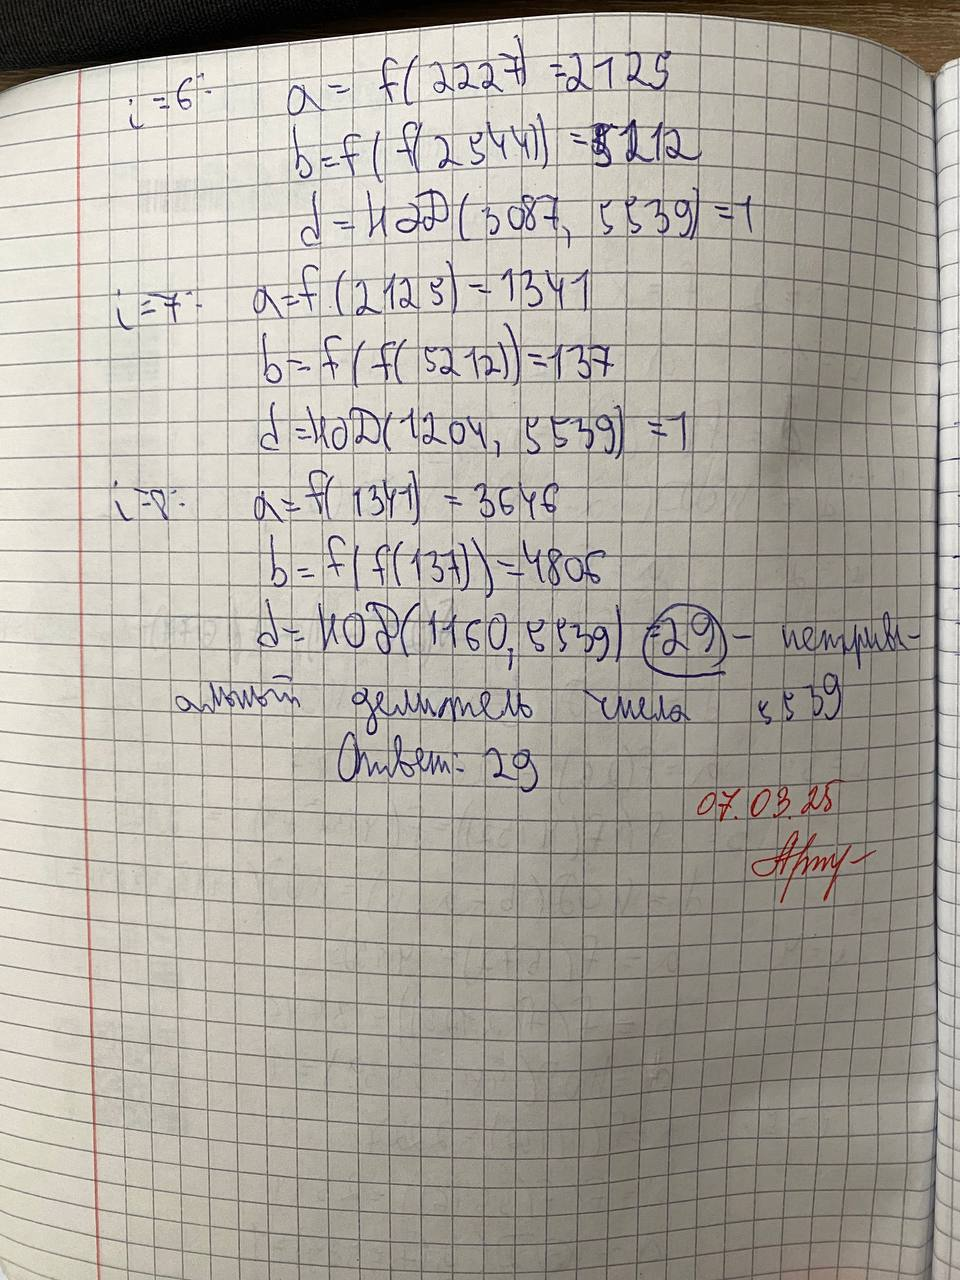 i=6: a = f(2227) = 2125
b = f(f(2544)) = 5212
d = НОД(3087, 5539) = 1
i=7: a = f(2125) = 1341
b = f(f(5212)) = 137
d = НОД(1204, 5539) = 1
i=8: a = f(1341) = 3646
b = f(f(137)) = 4806
d = НОД(1160, 5539) = 29 – нетриви-
альный делитель числа 5539
Ответ: 29
07.03.25